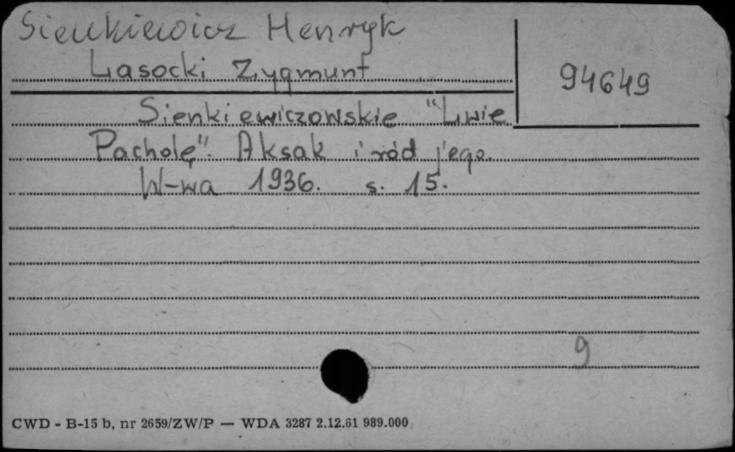 Sienkiewicz Henryk
Lasocki Zygmunt
94649
Sienkiewiczowskie "Lwie
Pacholę". Aksak i ród jego.
W-wa 1936. s. 15.
9
CWD - B-15 b, nr 2659/ZW/P — WDA 3287 2.12.61 989.000